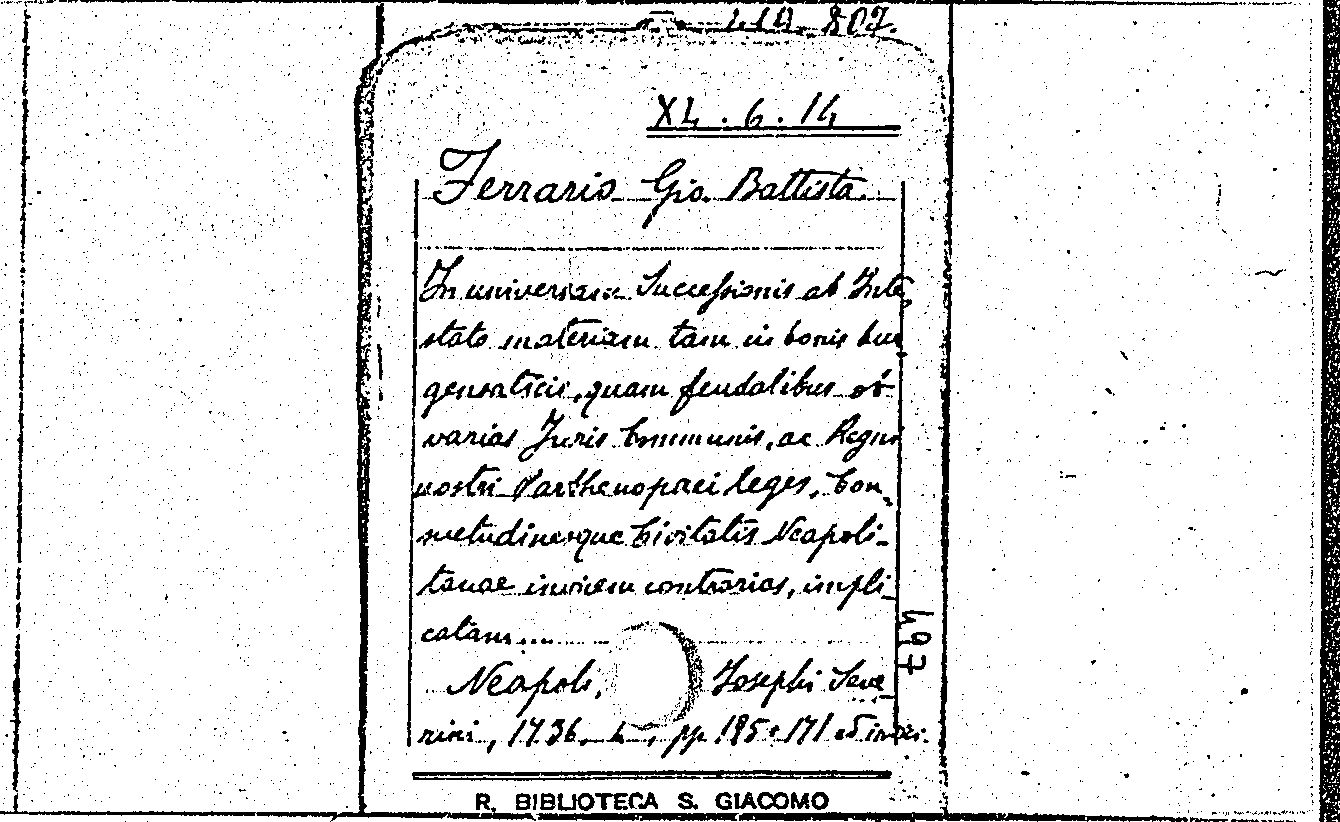 807.
XL. 6. 14
Ferraris Gio. Battista.
In universam Successionis ab Inte,
stato materiam tam in bonis bur,
gensaticis, quam feudalibus ob
varias Juris Communis, ac Regni
nostri Parthenopaei leges, Con,
suetudinesque Civitatis Neapoli-
tanae invicem contrarias, impli_
catam....
Neapoli, Josephi Seve_
rini, 1736. pp. 195 e 171 ed indici.
497
R. BIBLIOTECA S. GIACOMO